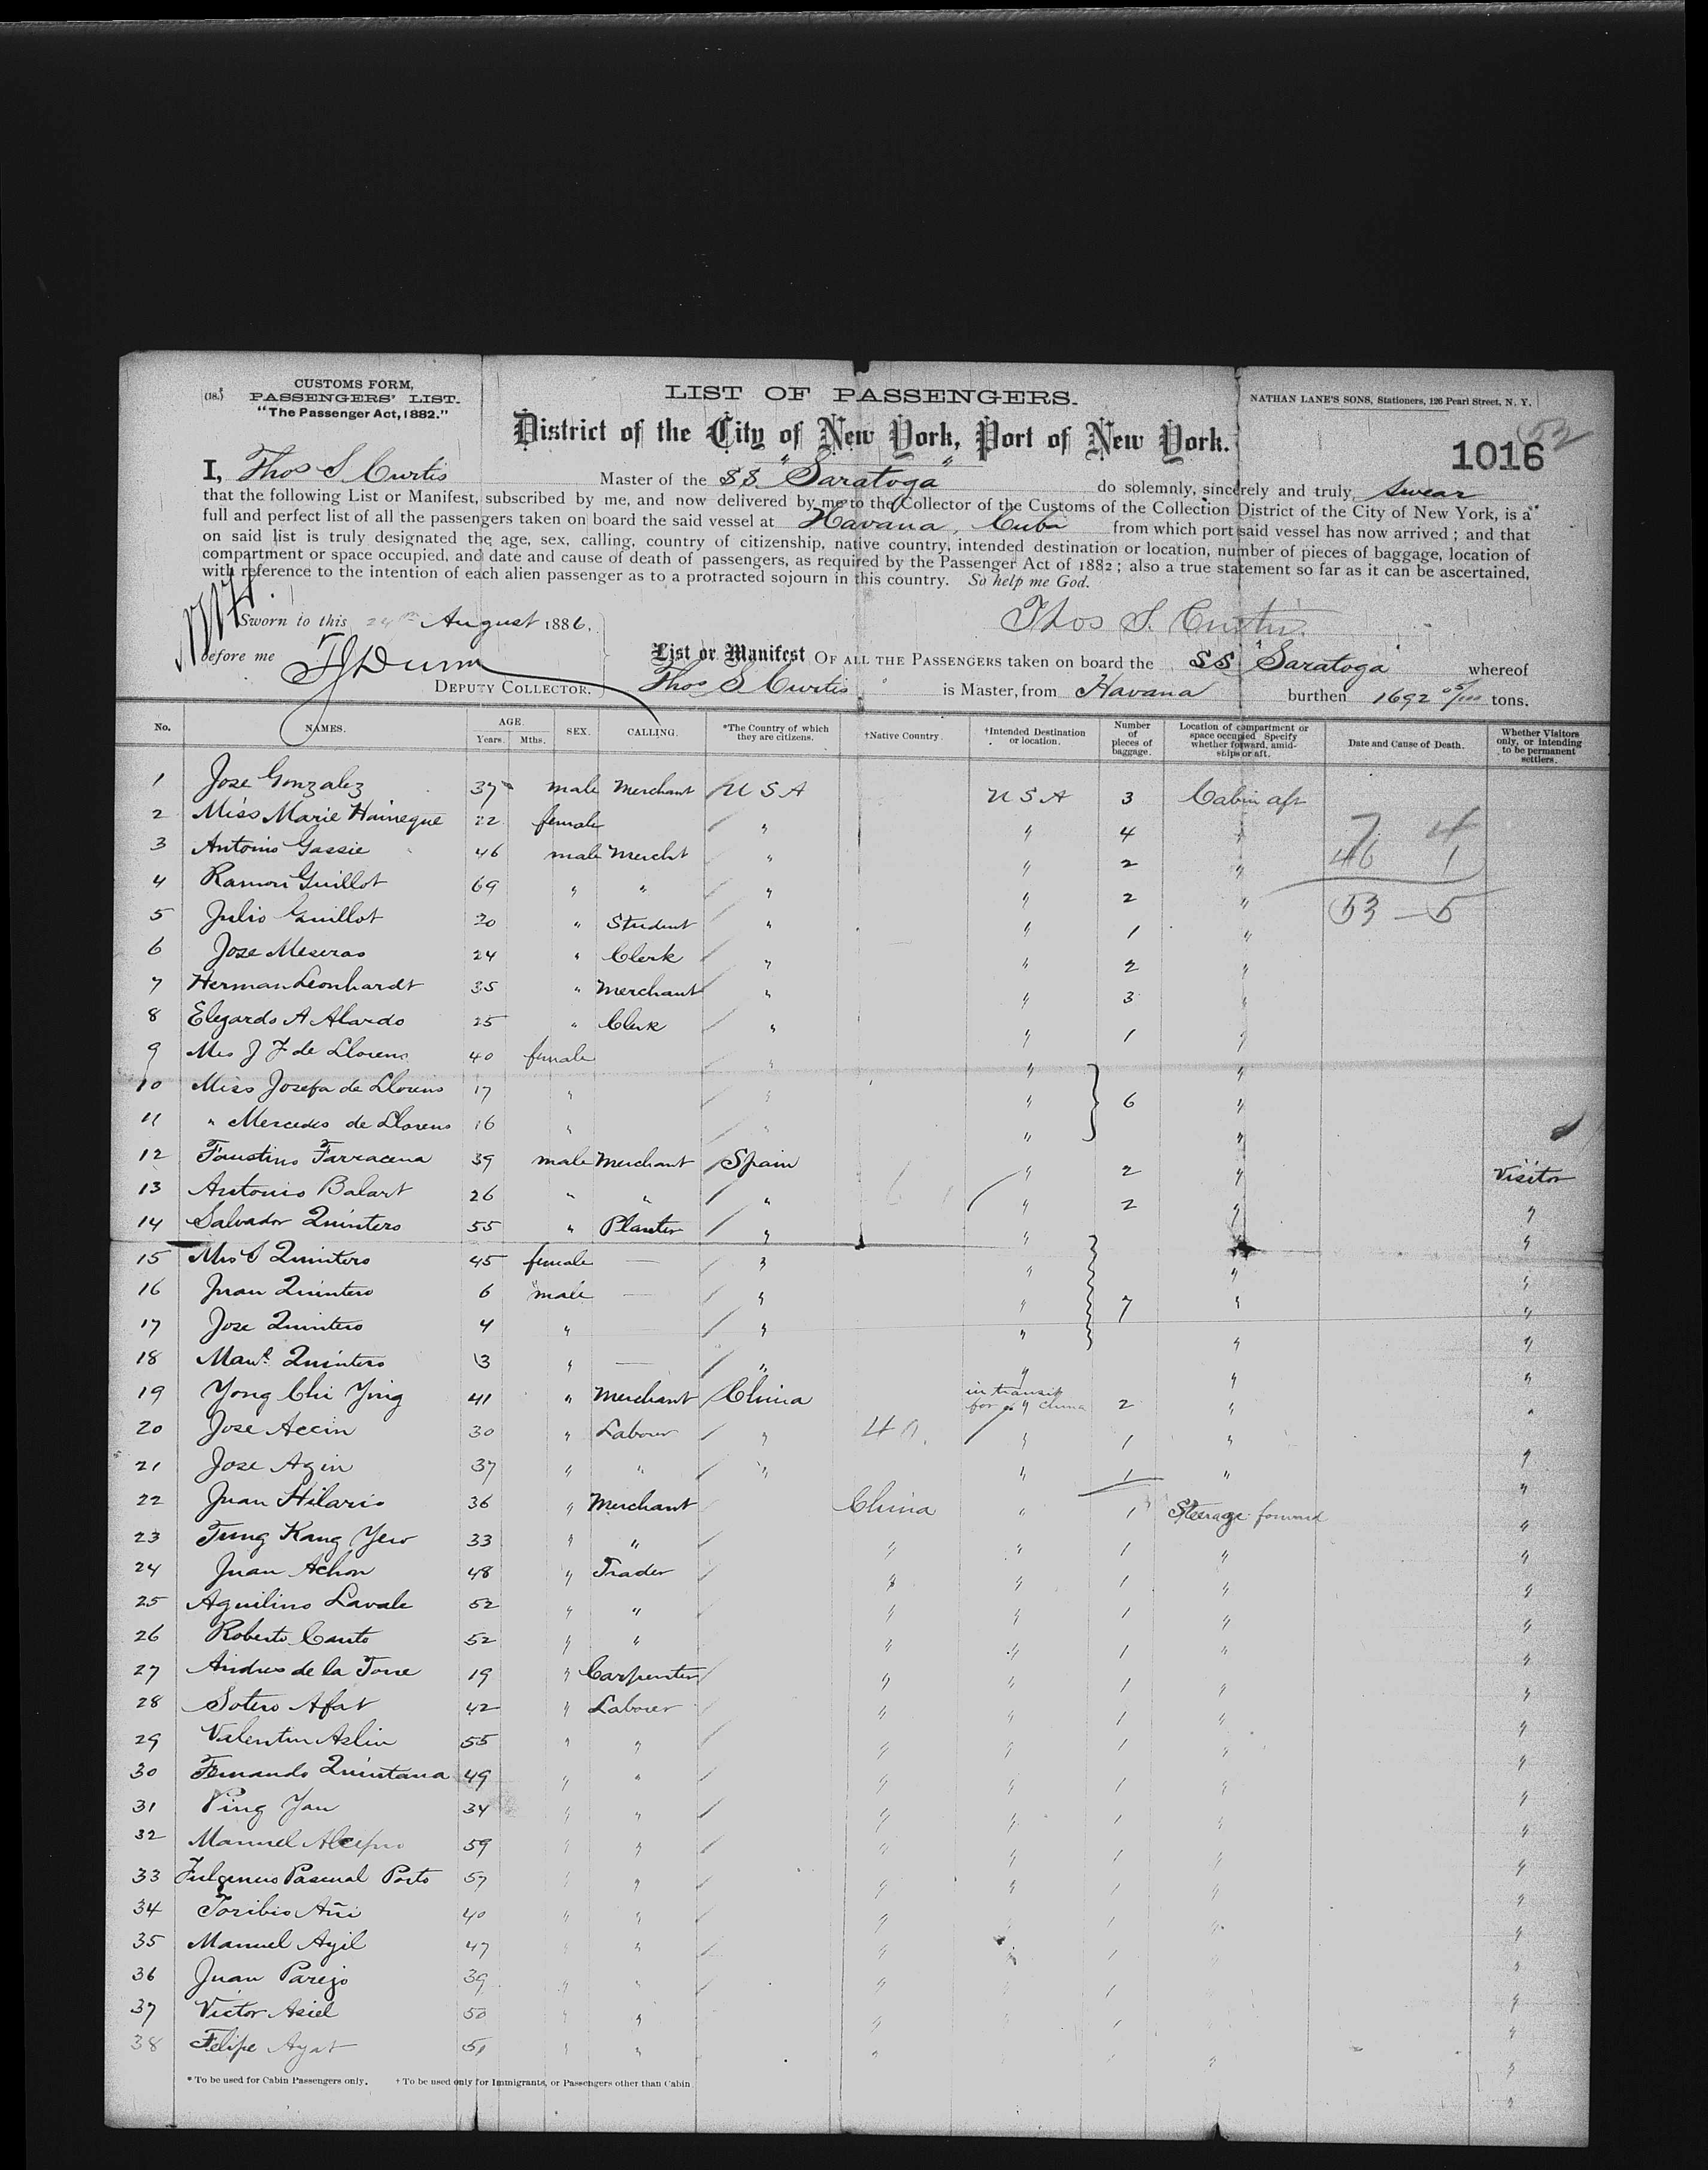 (18.) CUSTOMS FORM,
PASSENGERS' LIST.
"The Passenger Act, 1882."
LIST OF PASSENGERS.
NATHAN LANE'S SONS, Stationers, 126 Pearl Street, N. Y.
District of the City of New York, Port of New York.
1016
I, Thos S Curtis Master of the SS "Saratoga" do solemnly, sincerely and truly swear
that the following List or Manifest, subscribed by me, and now delivered by me to the Collector of the Customs of the Collection District of the City of New York, is a
full and perfect list of all the passengers taken on board the said vessel at Havana, Cuba from which port said vessel has now arrived; and that
on said list is truly designated the age, sex, calling, country of citizenship, native country, intended destination or location, number of pieces of baggage, location of
compartment or space occupied, and date and cause of death of passengers, as required by the Passenger Act of 1882; also a true statement so far as it can be ascertained,
with reference to the intention of each alien passenger as to a protracted sojourn in this country. So help me God.
Sworn to this 24th August 1886,
Thos S. Curtis
before me
DEPUTY COLLECTOR.
List or Manifest OF ALL THE PASSENGERS taken on board the SS "Saratoga" whereof
Thos S Curtis is Master, from Havana burthen 1692 05/100 tons.
No. NAMES. AGE. Years. Mths. SEX. CALLING. *The Country of which they are citizens. †Native Country. †Intended Destination or location. Number of pieces of baggage. Location of compartment or space occupied Specify whether forward, amidships or aft. Date and Cause of Death. Whether Visitors only, or intending to be permanent settlers.
1 Jose Gonzalez 37 male Merchant USA USA 3 Cabin aft
2 Miss Marie Haineque 22 female " " 4 "
3 Antonio Gassie 46 male Mercht " " 2 "
4 Ramon Guillot 69 " " " " 2 "
5 Julio Guillot 20 " Student " " 1 "
6 Jose Meseras 24 " Clerk " " 2 "
7 Herman Leonhardt 35 " Merchant " " 3 "
8 Elegardo A Alardo 25 " Clerk " " 1 "
9 Mrs J F de Llorens 40 female " " "
10 Miss Josefa de Llorens 17 " " " 6 "
11 " Mercedes de Llorens 16 " " " "
12 Faustino Farracena 39 male Merchant Spain " 2 " Visitor
13 Antonio Balart 26 " " " " 2 " "
14 Salvador Quintero 55 " Planter " " " "
15 Mrs S Quintero 45 female — " " " "
16 Juan Quintero 6 male — " " 7 " "
17 Jose Quintero 4 " " " " "
18 Manl Quintero 3 " — " " " "
19 Yong Chi Ying 41 " Merchant China in transit for China 2 " "
20 Jose Accin 30 " Labour " " 1 " "
21 Jose Agin 37 " " " " 1 " "
22 Juan Hilario 36 " Merchant China " 1 Steerage forward "
23 Tung Kang Yew 33 " " " " 1 " "
24 Juan Achon 48 " Trader " " 1 " "
25 Aguilino Lavale 52 " " " " 1 " "
26 Roberto Canto 52 " " " " 1 " "
27 Andres de la Torre 19 " Carpenter " " 1 " "
28 Sotero Afat 42 " Laborer " " 1 " "
29 Valentin Aslin 55 " " " " 1 " "
30 Fernando Quintana 49 " " " " 1 " "
31 Ping Yan 34 " " " " 1 " "
32 Manuel 59 " " " " 1 " "
33 Fulgencio Pascual Porto 57 " " " " 1 " "
34 Toribio Añi 40 " " " " 1 " "
35 Manuel Agil 47 " " " " 1 "
36 Juan Parejo 39 " " " 1 "
37 Victor Asiel 50 " " " 1 "
38 Felipe Ayat 51 " " " " "
* To be used for Cabin Passengers only. † To be used only for Immigrants, or Passengers other than Cabin.